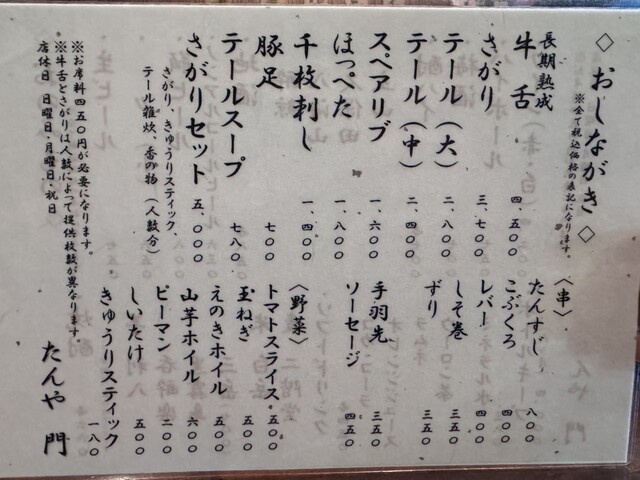 ◇おしながき◇
※全て税込価格の表記になります。
長期熟成
牛舌 四、五〇〇
さがり 三、七〇〇
テール(大) 二、八〇〇
テール(中) 二、四〇〇
スペアリブ 一、六〇〇
ほっぺた 一、八〇〇
千枚刺し 一、四〇〇
豚足 七〇〇
テールスープ 七八〇
さがりセット 五、〇〇〇
さがり、きゅうりスティック、
テール雑炊、香の物(人数分)
※お席料四五〇円が必要になります。
※牛舌とさがりは人数によって提供枚数が異なります。
店休日 日曜日・月曜日・祝日
〈串〉
たんすじ 八〇〇
こぶくろ 四〇〇
レバー 四〇〇
しそ巻 三五〇
ずり 三五〇
手羽先 三五〇
ソーセージ 四五〇
〈野菜〉
トマトスライス 五〇〇
玉ねぎ 五〇〇
えのきホイル 五〇〇
山芋ホイル 六〇〇
ピーマン 二〇〇
しいたけ 五〇〇
きゅうりスティック 一八〇
たんや 門